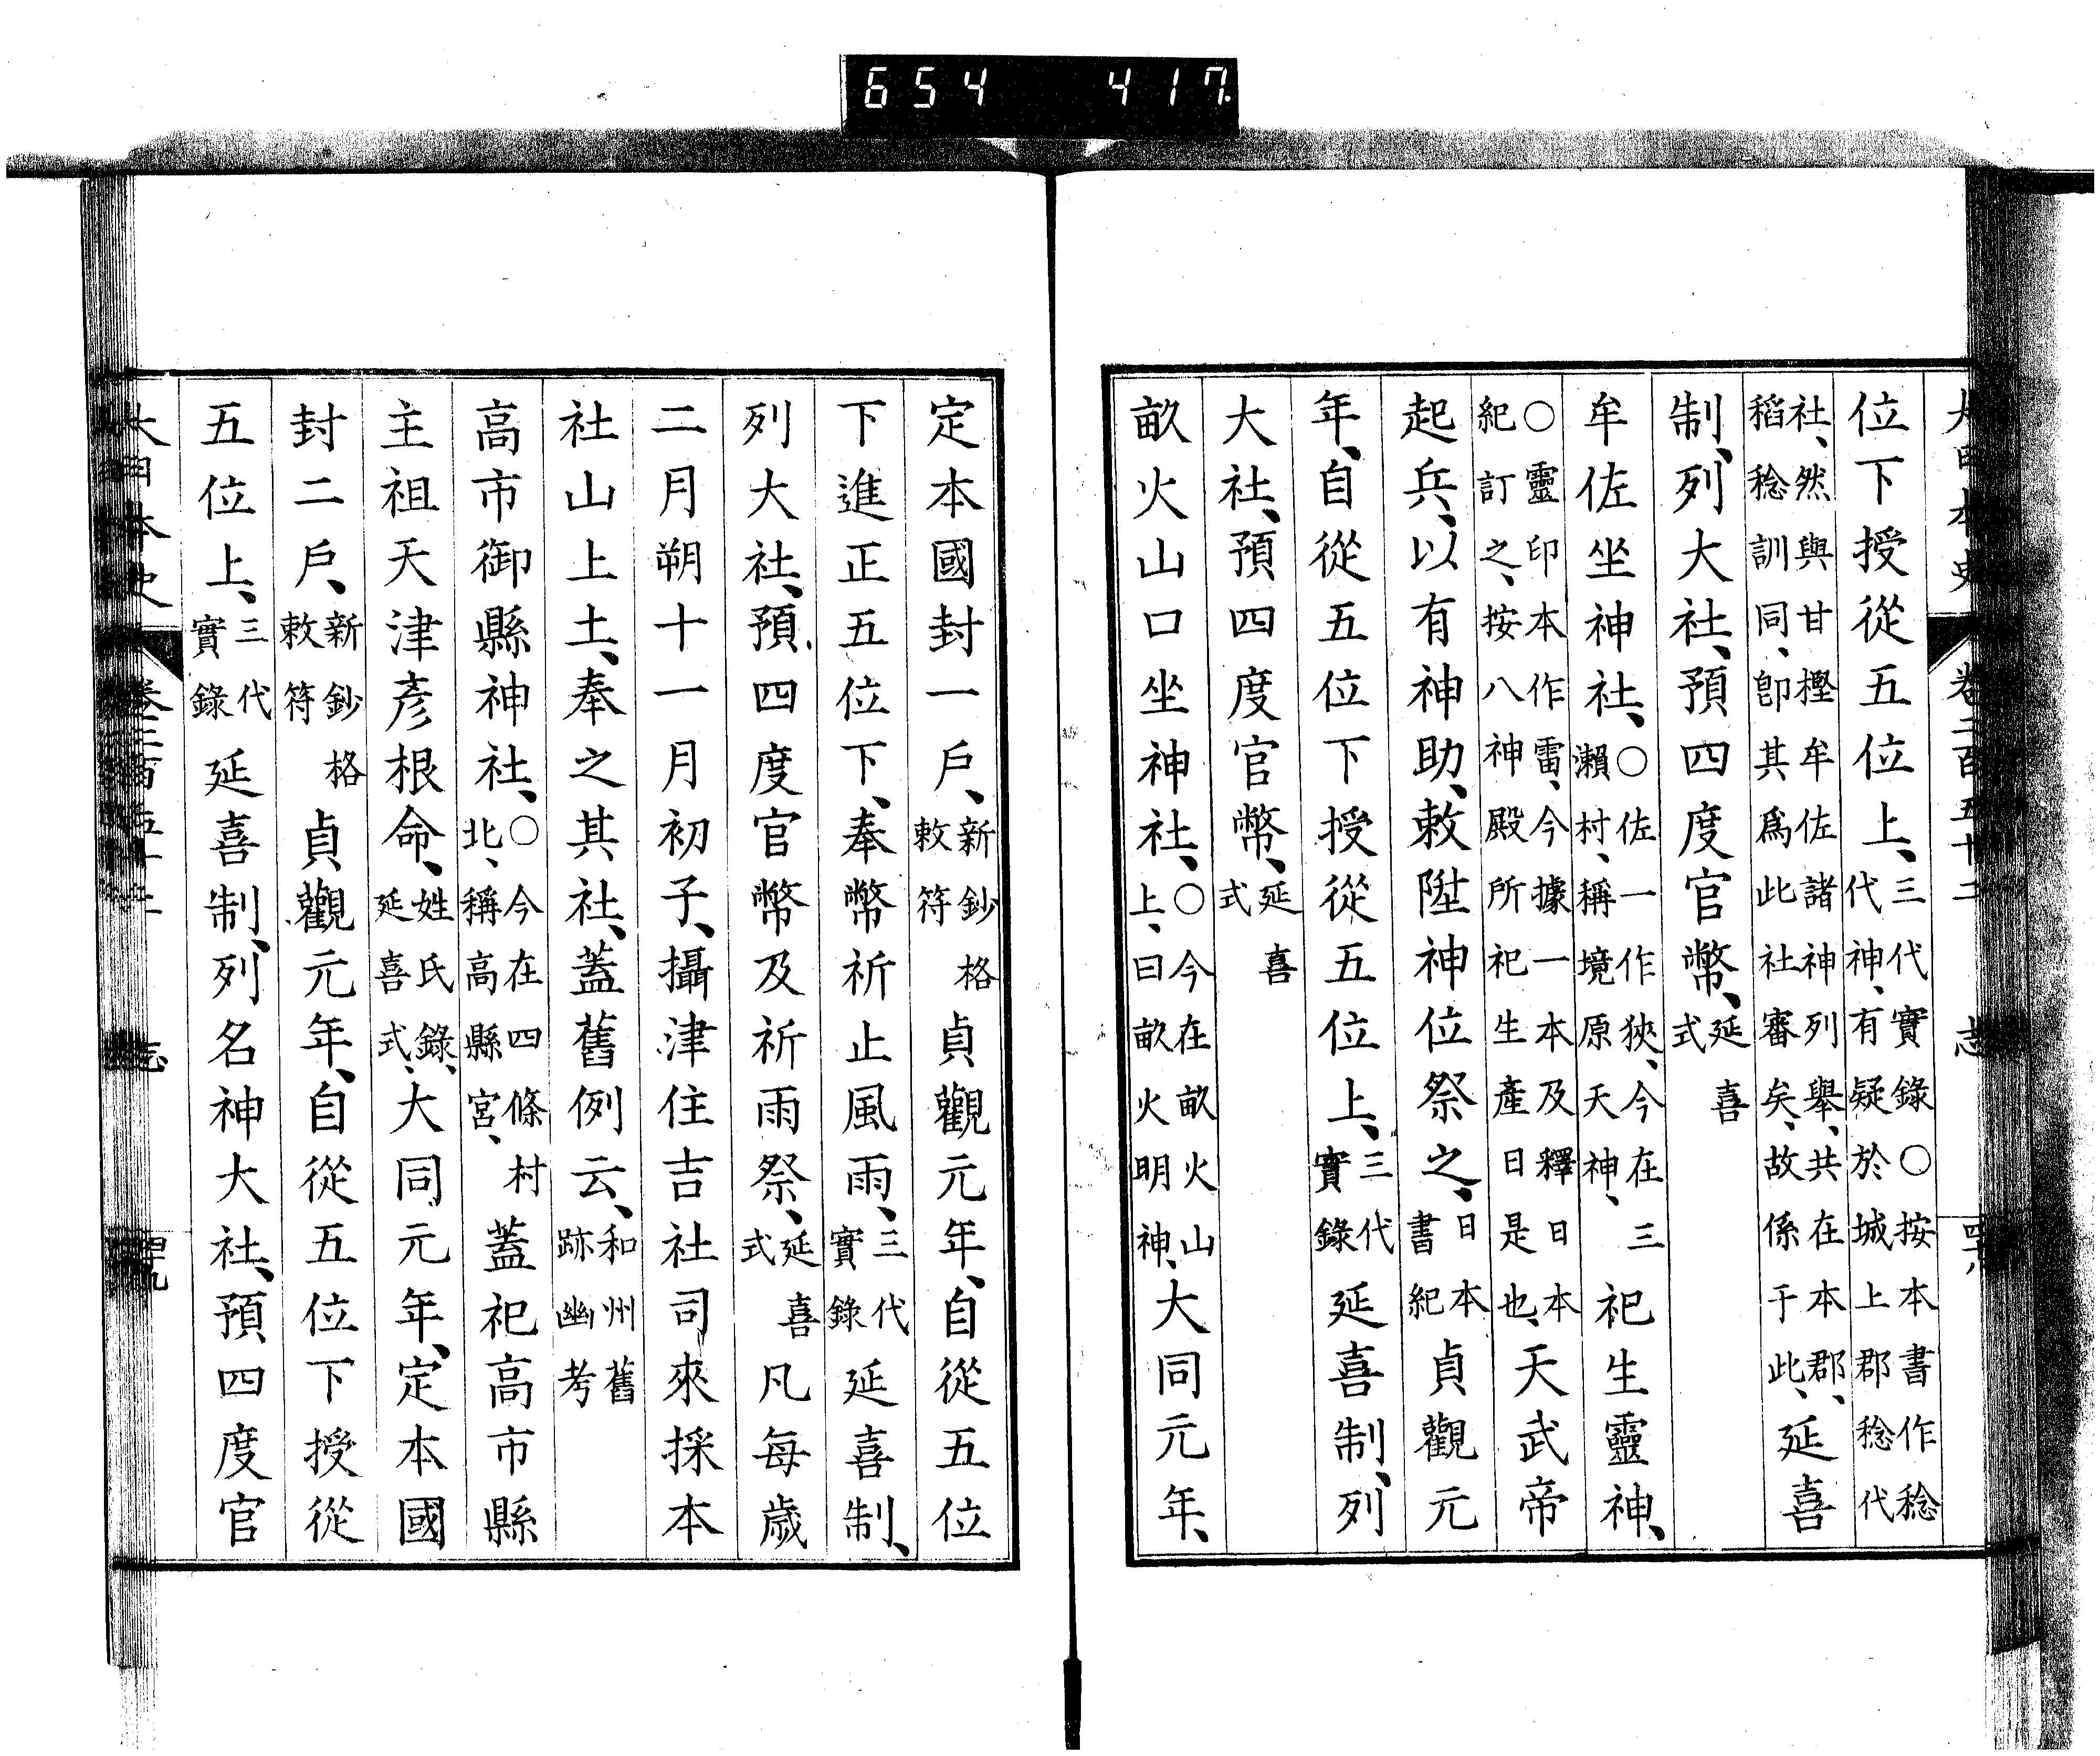 大日本史 卷二百五十二 志 四十八
位下授從五位上、三代實錄○按本書作稔代神、有疑於城上郡稔代
社、然與甘樫牟佐諸神列舉、共在本郡、稻稔訓同、卽其爲此社審矣、故係于此、延喜
制、列大社、預四度官幣、延喜式
牟佐坐神社、○佐一作狹、今在三瀨村、稱境原天神、祀生靈神、
○靈印本作雷、今據一本及釋日本紀訂之、按八神殿所祀生產日是也、天武帝
起兵、以有神助、敕陞神位祭之、日本書紀貞觀元
年、自從五位下授從五位上、三代實錄延喜制、列
大社、預四度官幣、延喜式
畝火山口坐神社、○今在畝火山上、曰畝火明神、大同元年、
定本國封一戶、新鈔格敕符貞觀元年、自從五位
下進正五位下、奉幣祈止風雨、三代實錄延喜制、
列大社、預四度官幣及祈雨祭、延喜式凡每歲
二月朔十一月初子、攝津住吉社司來採本
社山上土、奉之其社、蓋舊例云、和州舊跡幽考
高市御縣神社、○今在四條村北、稱高縣宮、蓋祀高市縣
主祖天津彥根命、姓氏錄、延喜式、大同元年、定本國
封二戶、新鈔格敕符貞觀元年、自從五位下授從
五位上、三代實錄延喜制、列名神大社、預四度官
大日本史 卷二百五十二 志 四十九